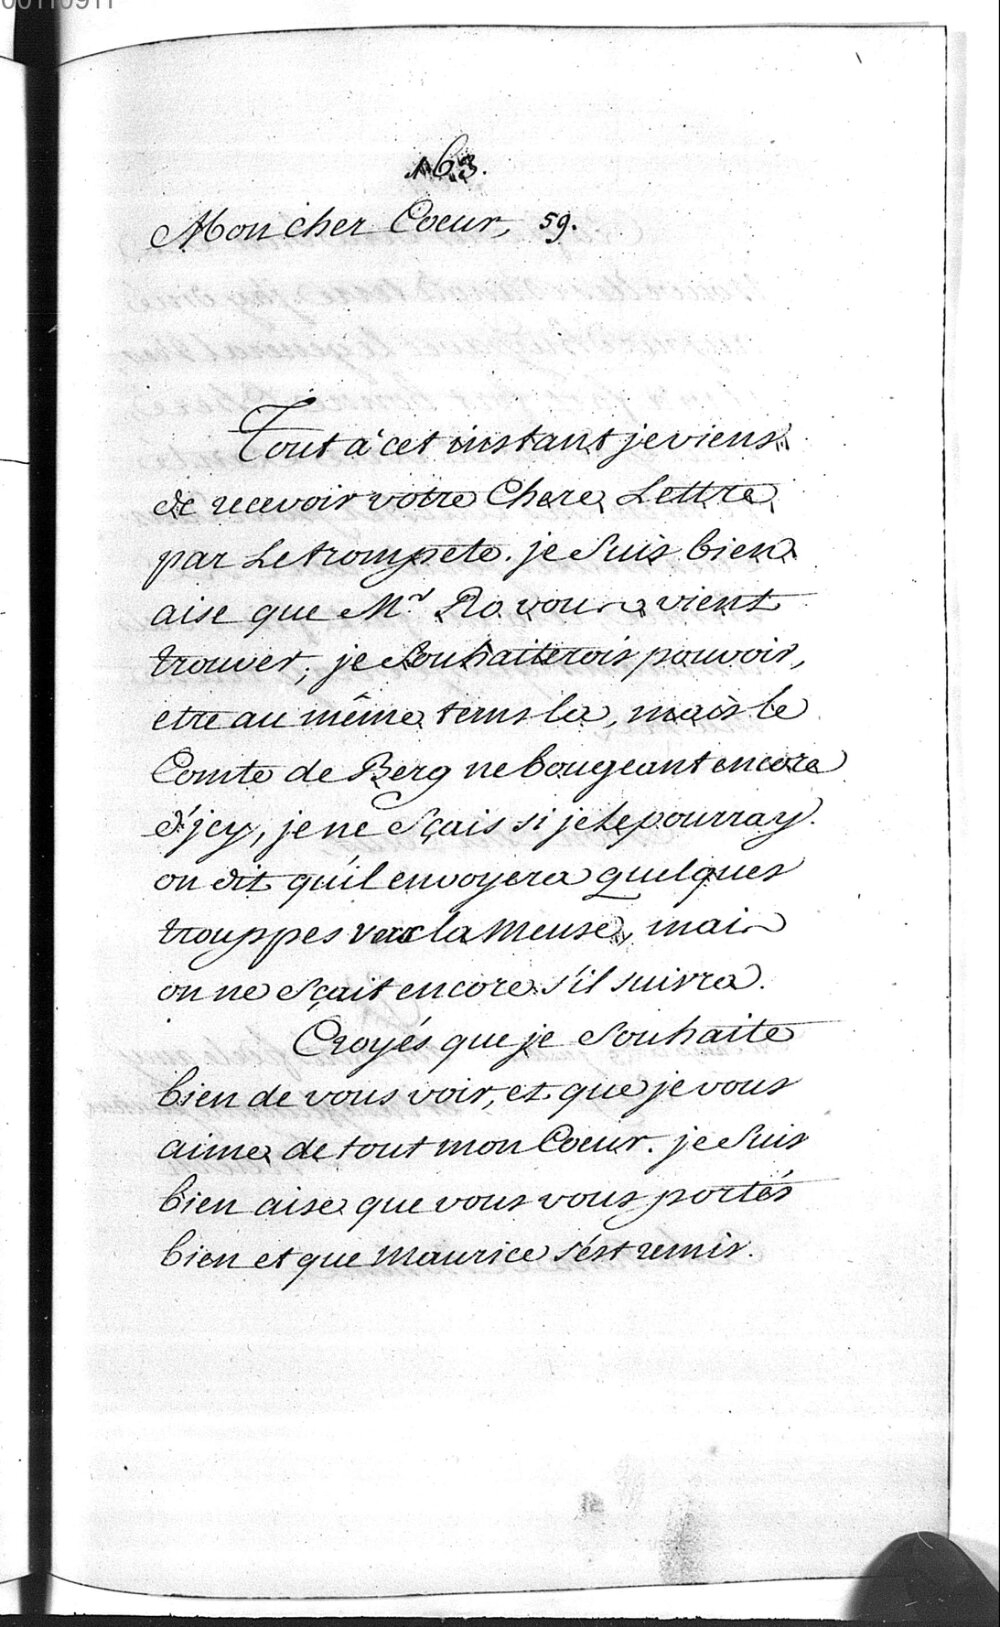 163.
Mon cher Coeur, 59.
Tout à cet instant je viens
de recevoir votre Chere Lettre
par Le trompete. je Suis bien
aise que Mr Ro. vous vient
trouver, je Souhaiterois pouvoir,
etre au même tems la, mais le
Comte de Berg ne bougeant encore
d'jcy, je ne Sçais si je Le pourray.
on dit qu'il envoyera quelques
trouppes vers la Meuse, mais
on ne Sçait encore s'il suivra.
Croyés que je Souhaite
bien de vous voir, et que je vous
aime de tout mon Coeur. je Suis
bien aise que vous vous portés
bien et que Maurice s'est remis.